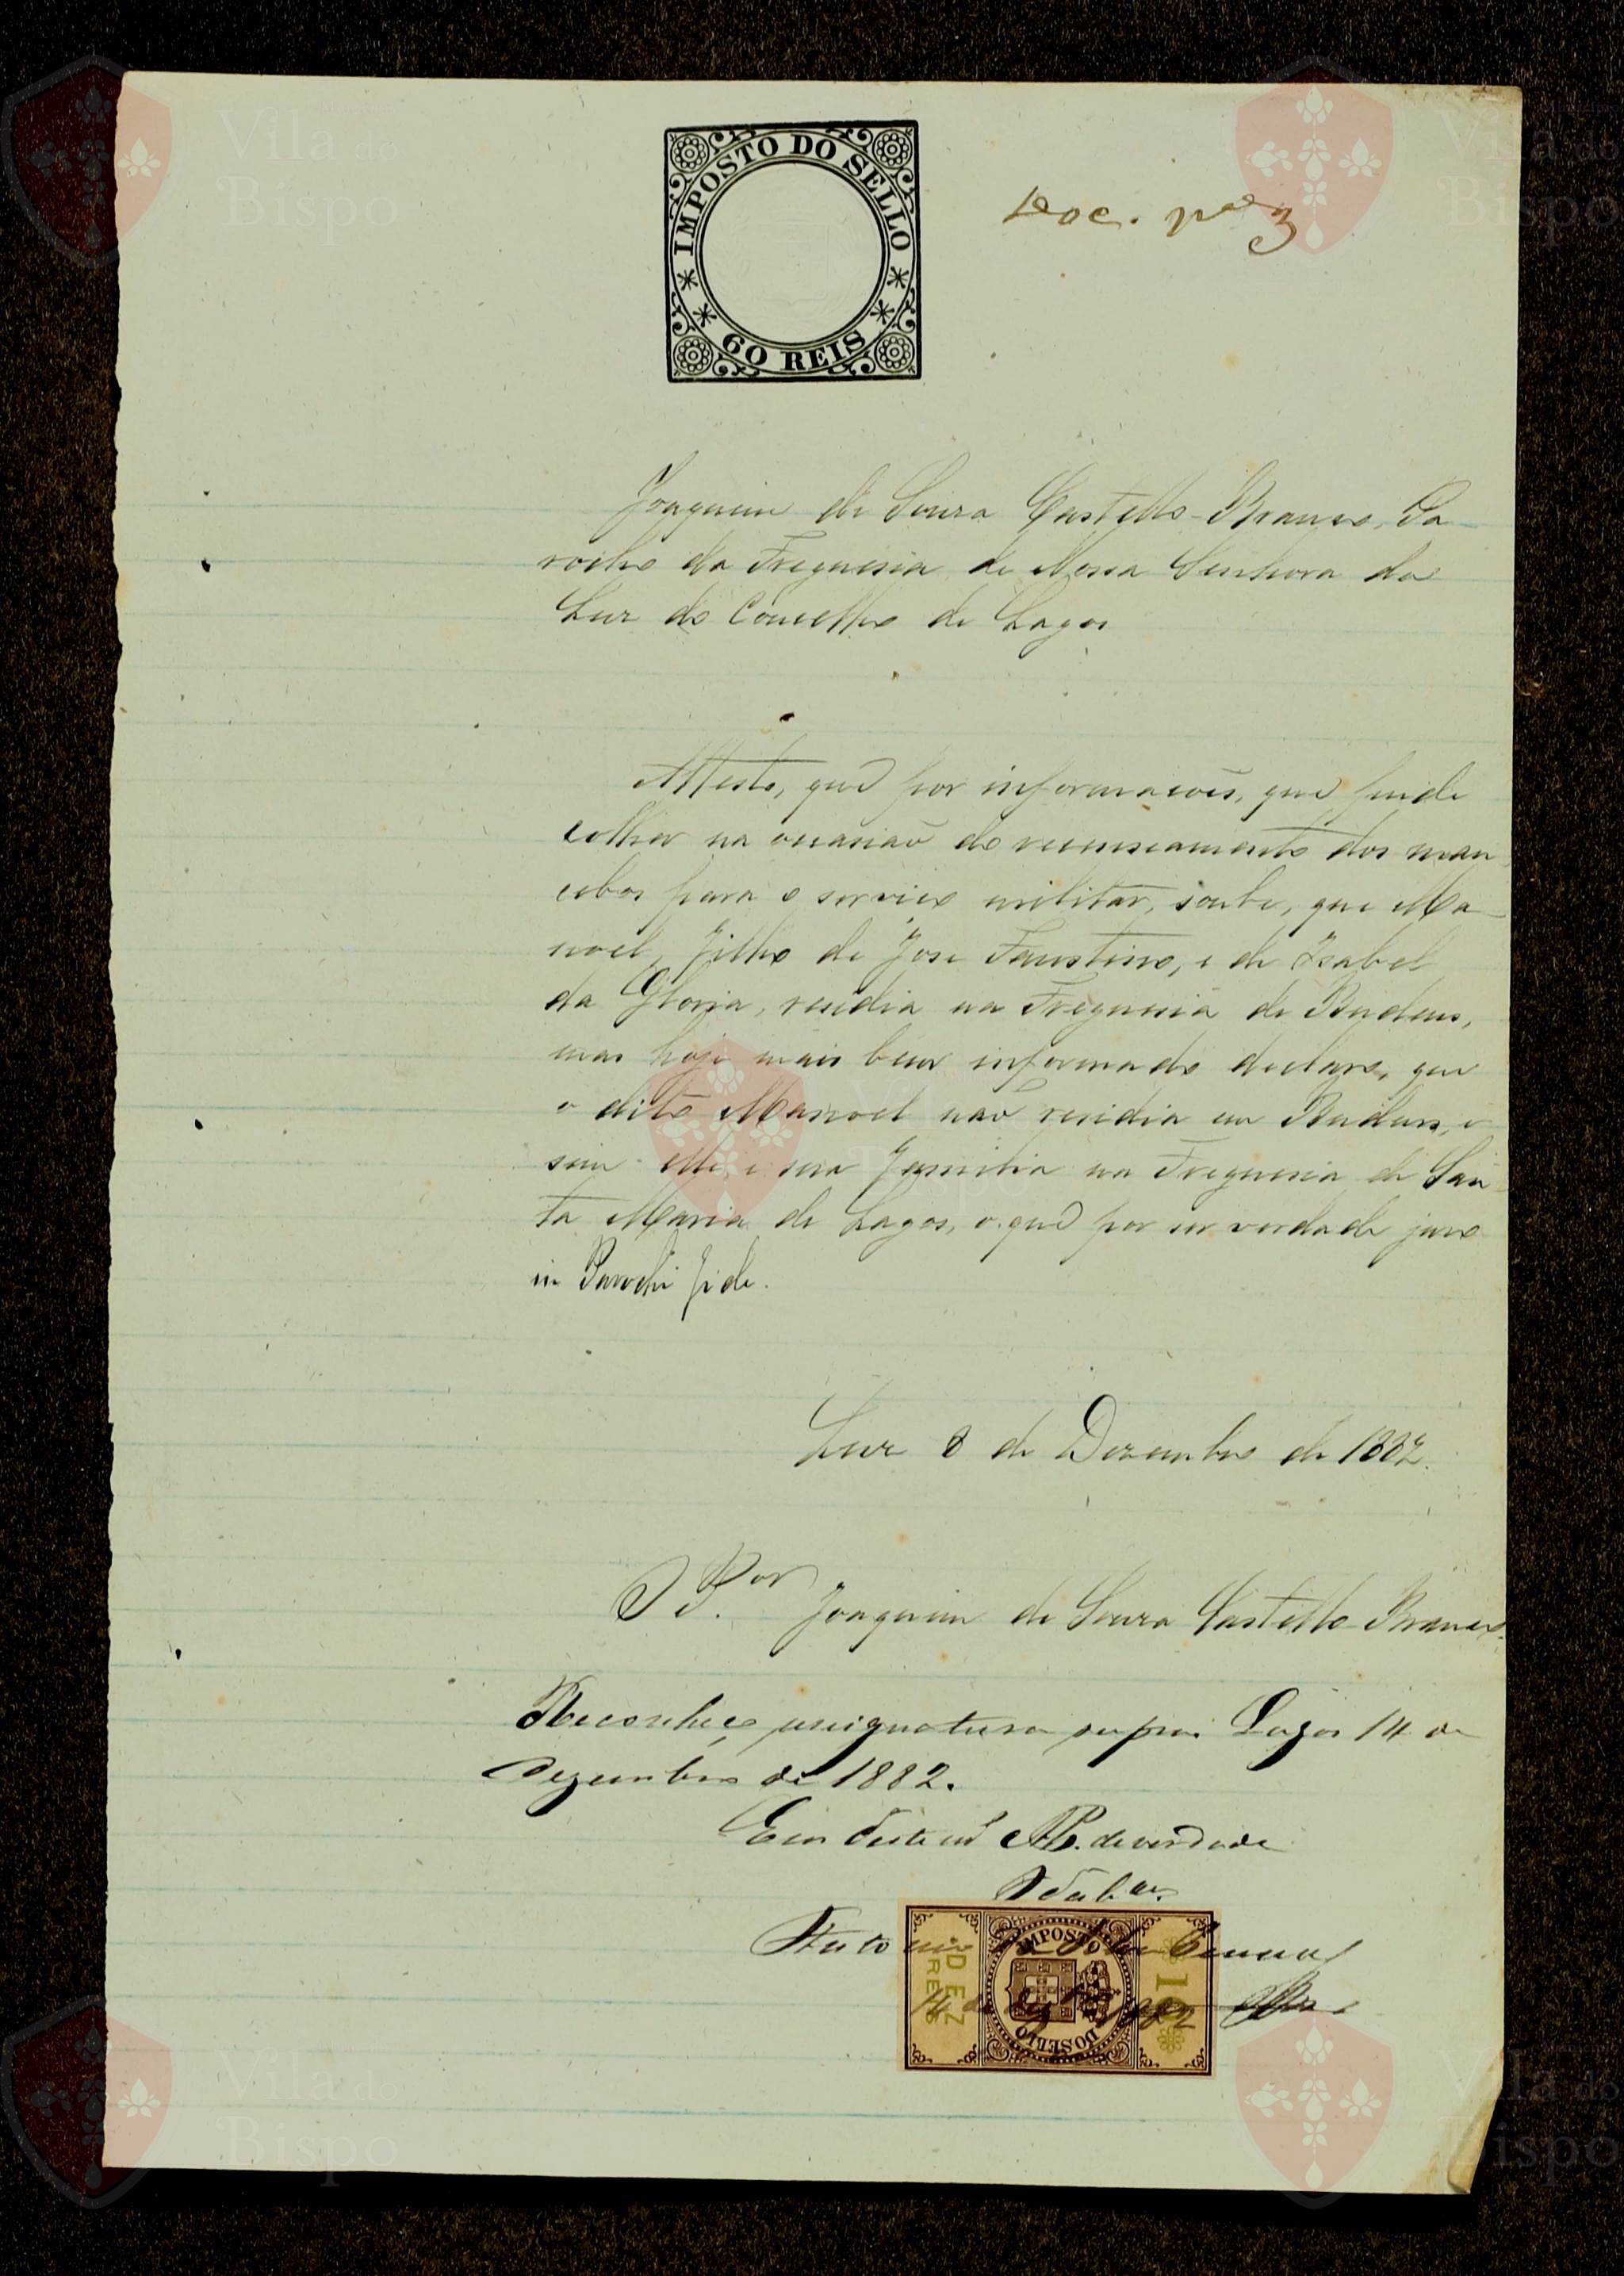 IMPOSTO DO SELLO
60 REIS
Doc. nº 3
Joaquim de Souza Castello-Branco, Pa
rocho da Freguesia de Nossa Senhora da
Luz do Concelho de Lagos
Attesto, que por informacoẽs, que pude
colher na occasiaõ do recenseamento dos man
cebos para o servico militar, soube, que Ma-
noel, filho de Jose Faustino, e de Izabel
da Gloria, residia na Freguesia de Budens,
mas hoje mais bem informado declaro, que
o dito Manoel nao residia em Budens, e
sim elle, e sua familia na Freguesia de San
ta Maria de Lagos, o que por ser verdade juro
in Parochi fide.
Luz 8 de Dezembro de 1882.
O P.or Joaquim de Souza Castello-Branco
Reconheço a assignatura supra. Lagos 14 de
Dezembro de 1882.
Em test.º de verdade
O Tab.am
Antonio
14 de 1882
IMPOSTO DO SELLO
DEZ REIS
10
Vila do Bispo
Vila do Bispo
Vila do Bispo
Vila do Bispo
Vila do Bispo